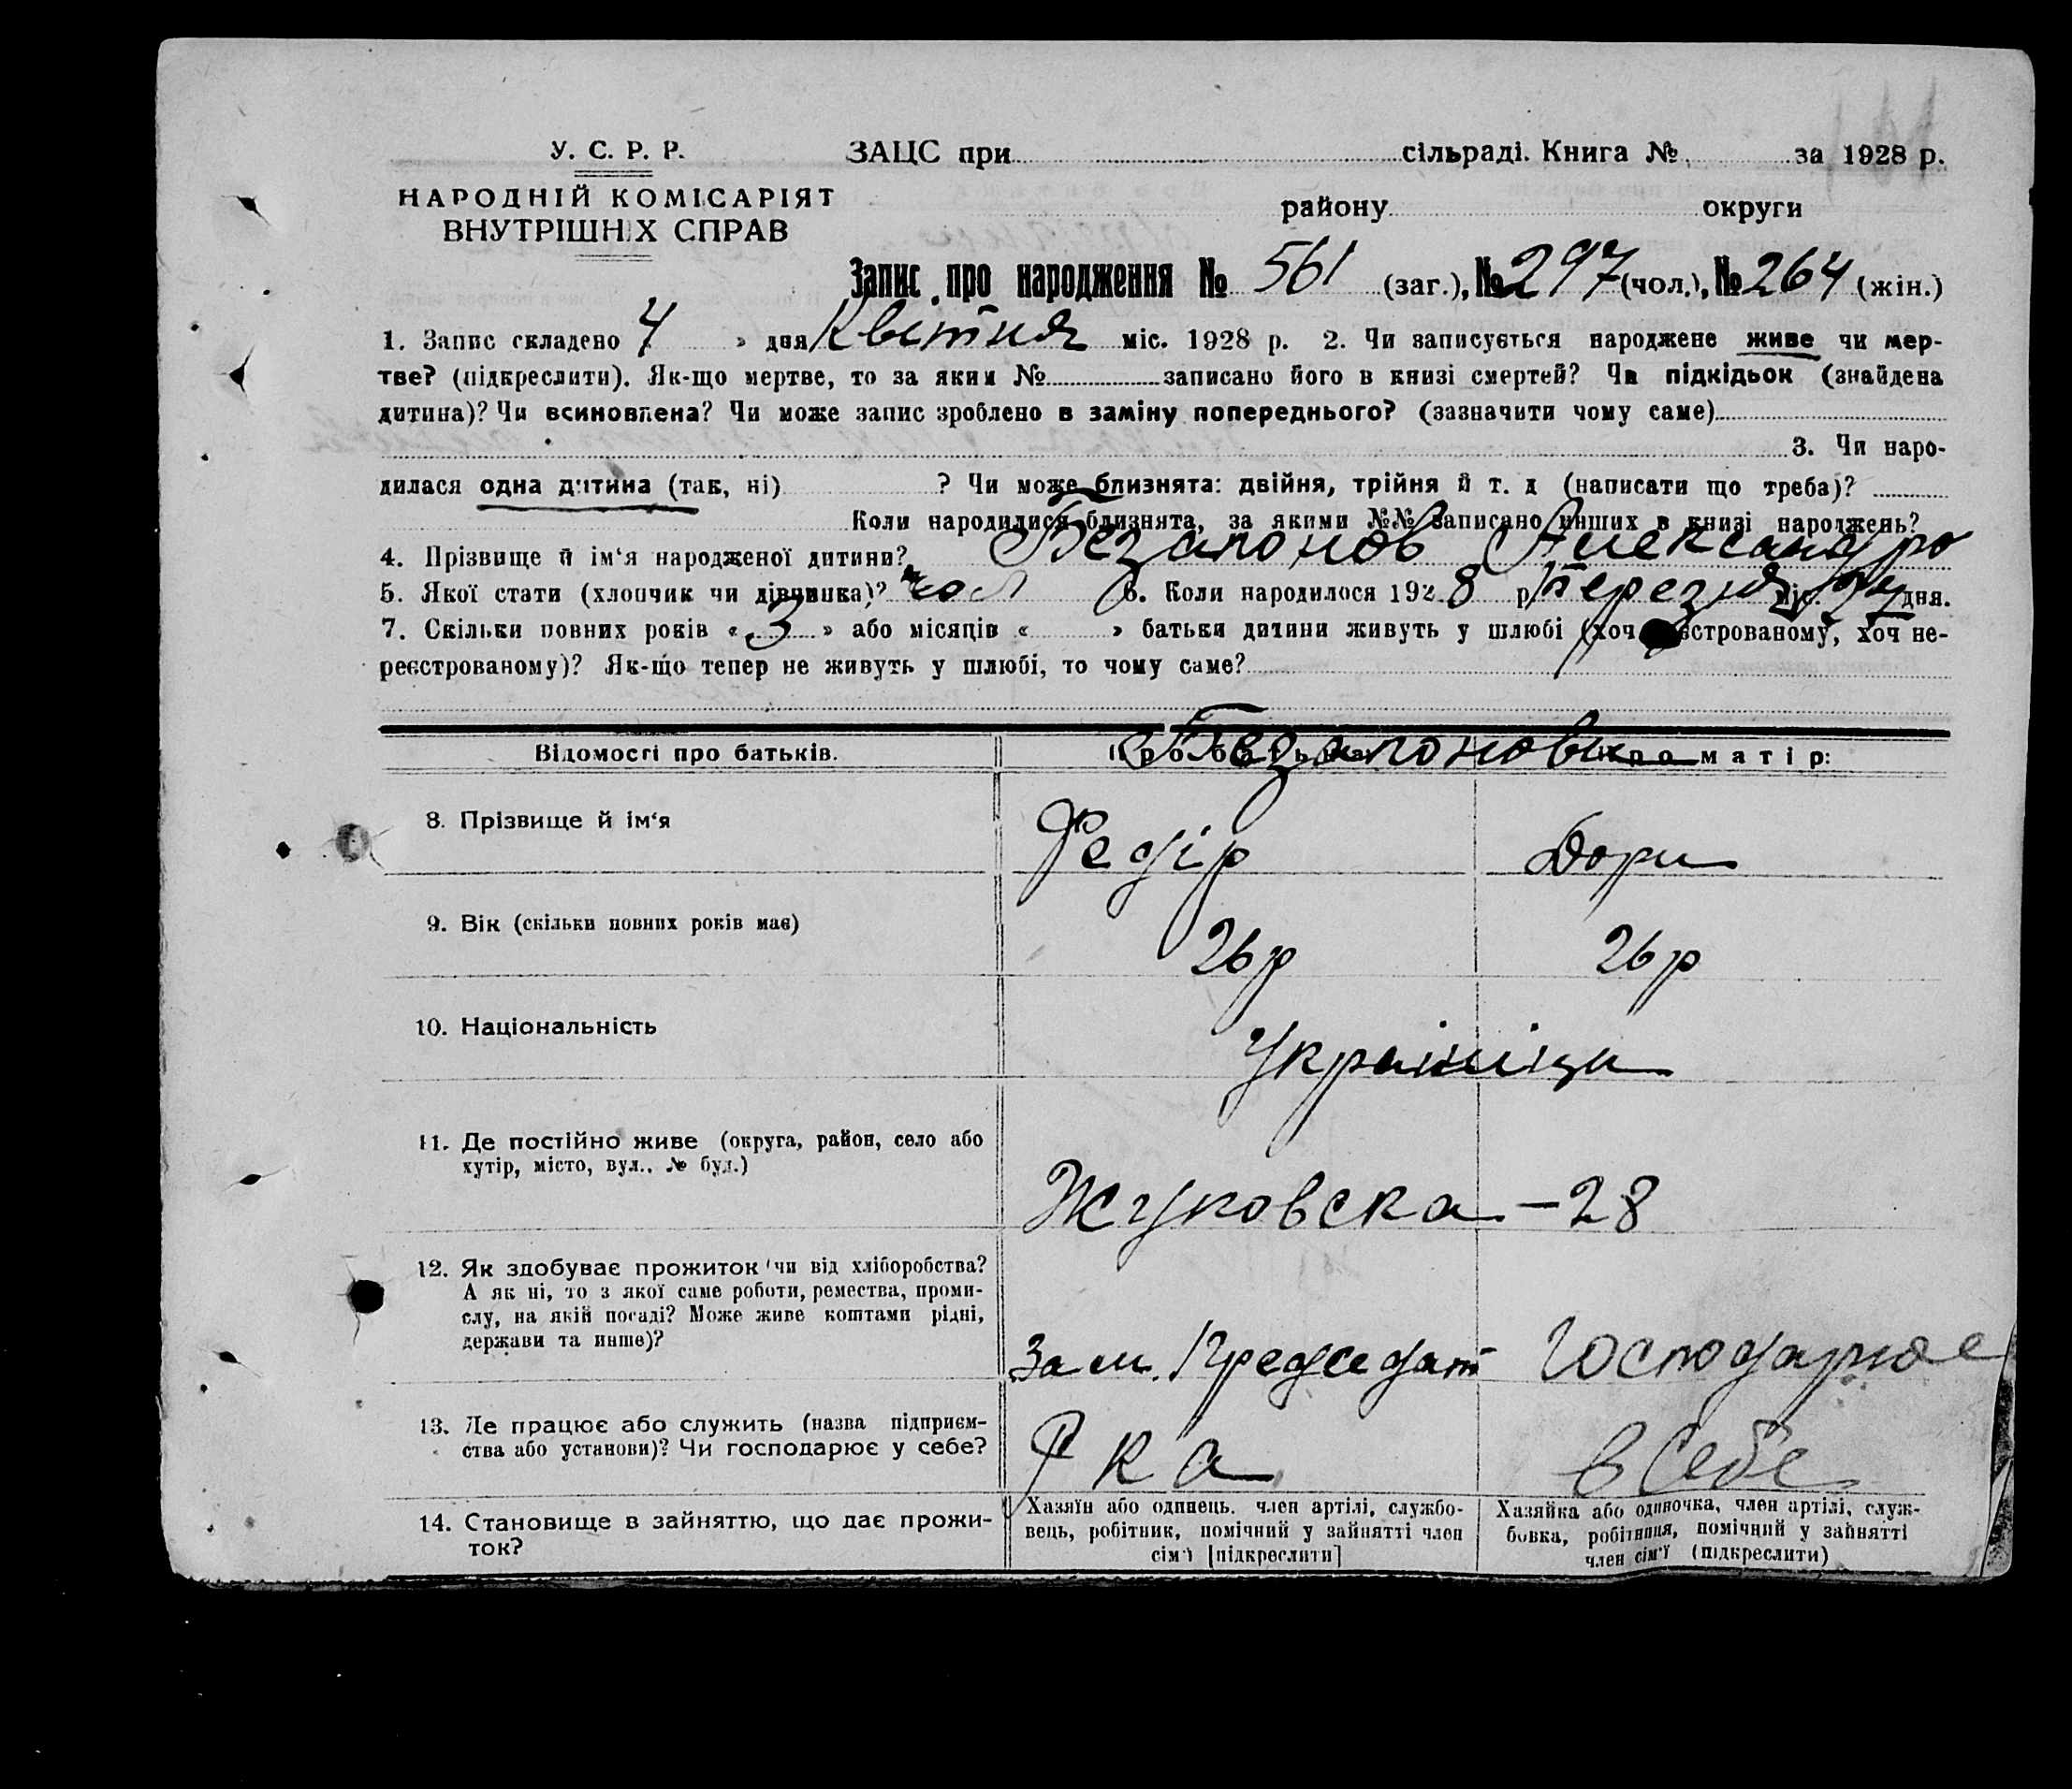 У. С. Р. Р.
НАРОДНІЙ КОМІСАРІЯТ
ВНУТРІШНІХ СПРАВ
ЗАЦС при сільраді. Книга № за 1928 р.
району округи
Запис про народження № 561 (заг.), № 297 (чол.), № 264 (жін.)
1. Запис складено « 4 » дня Квітня міс. 1928 р. 2. Чи записується народжене живе чи мер-
тве? (підкреслити). Як-що мертве, то за яким № записано його в книзі смертей? Чи підкідьок (знайдена
дитина)? Чи всиновлена? Чи може запис зроблено в заміну попереднього? (зазначити чому саме)
3. Чи наро-
дилася одна дитина (так, ні) ? Чи може близнята: двійня, трійня й т. д (написати що треба)?
Коли народилися близнята, за якими №№ записано инших в книзі народжень?
4. Прізвище й ім‘я народженої дитини? Безапонов Александро
5. Якої стати (хлопчик чи дівчинка)? чол 6. Коли народилося 1928 р Березня міс. 24 дня.
7. Скільки повних років « 3 » або місяців « » батьки дитини живуть у шлюбі (хоч реєстрованому, хоч не-
реєстрованому)? Як-що тепер не живуть у шлюбі, то чому саме?
Відомості про батьків. Про батька: Про матір:
Безапонови
8. Прізвище й ім‘я Федір Дори
9. Вік (скільки повних років має) 26 р 26 р
10. Національність Українци
11. Де постійно живе (округа, район, село або
хутір, місто, вул.. № буд.)
Жуковска - 28
12. Як здобуває прожиток чи від хліборобства?
А як ні, то з якої саме роботи, ремества, проми-
слу, на якій посаді? Може живе коштами рідні,
держави та инше)?
Зам. Председат Господарює
13. Де працює або служить (назва підприєм-
ства або установи)? Чи господарює у себе?
Рка в себе
14. Становище в зайняттю, що дає прожи-
ток?
Хазяїн або одинець, член артілі, службо-
вець, робітник, помічний у зайнятті член
сім‘ї [підкреслити]
Хазяйка або одиночка, член артілі, служ-
бовка, робітниця, помічний у зайнятті
член сім‘ї (підкреслити)